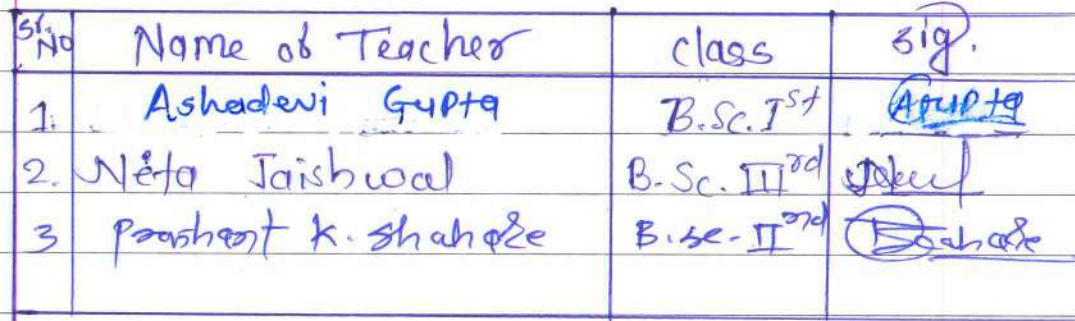 Sr. No Name of Teacher class sig.
1. Ashadevi Gupta B.Sc. Ist AGupta
2. Neta Jaishwal B.Sc. IIIrd
3 Prashant K. Shahare B.Sc- IInd